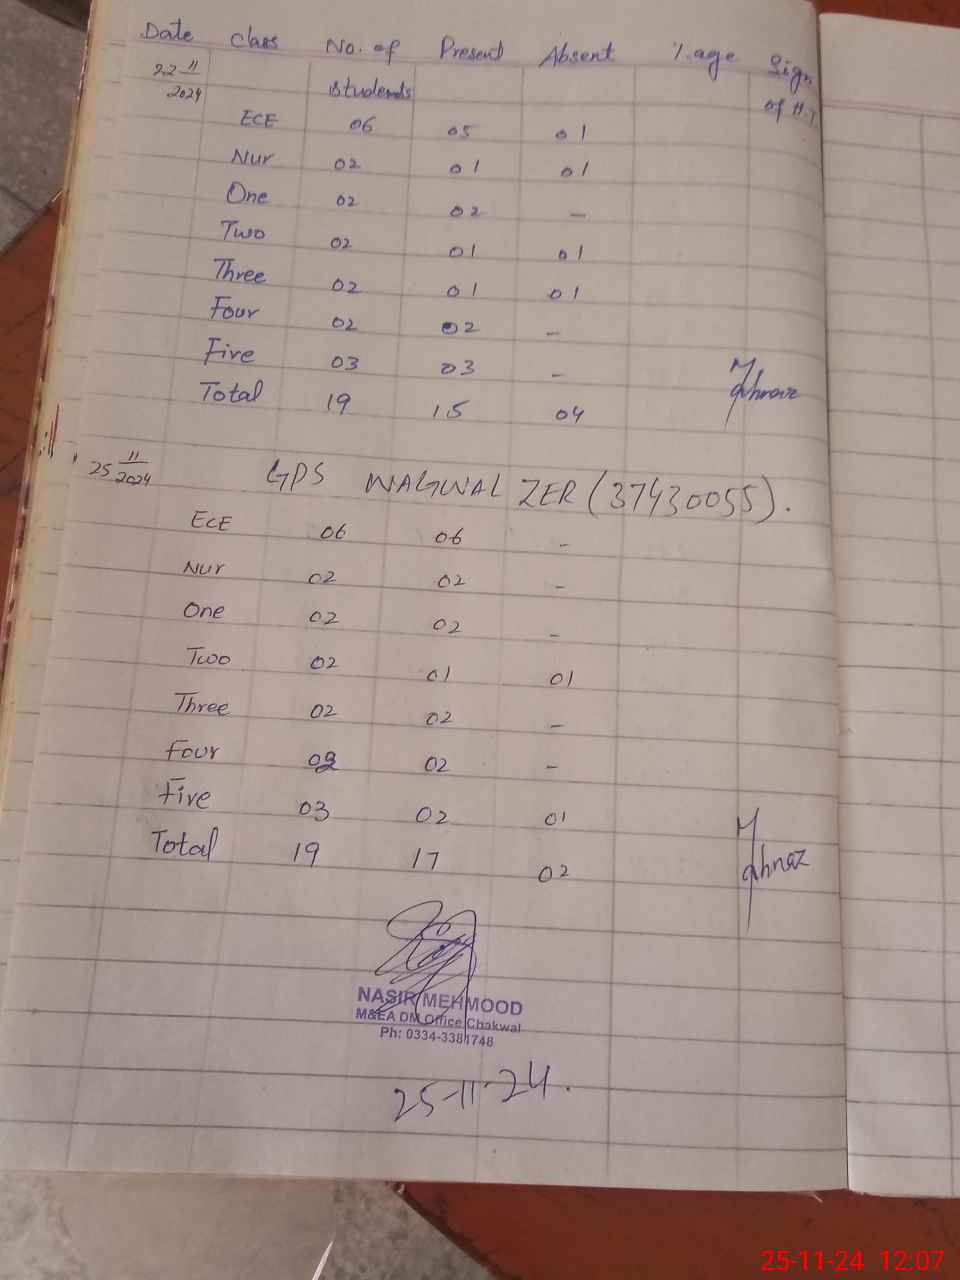 Date Class No. of Present Absent %.age Sign
22 11/2024 Students of H.T
ECE 06 05 01
Nur 02 01 01
One 02 02 -
Two 02 01 01
Three 02 01 01
Four 02 02 -
Five 03 03 -
Total 19 15 04
25 11/2024 GPS WAGWAL ZER (37430055).
ECE 06 06 -
Nur 02 02 -
One 02 02 -
Two 02 01 01
Three 02 02 -
Four 02 02 -
Five 03 02 01
Total 19 17 02
Mahnaz
NASIR MEHMOOD
M&EA DM Office Chakwal
Ph: 0334-3381748
25-11-24.
25-11-24 12:07